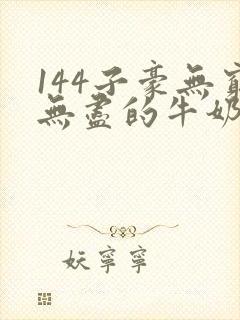 144子豪無窮
無盡的牛奶
妖寧寧